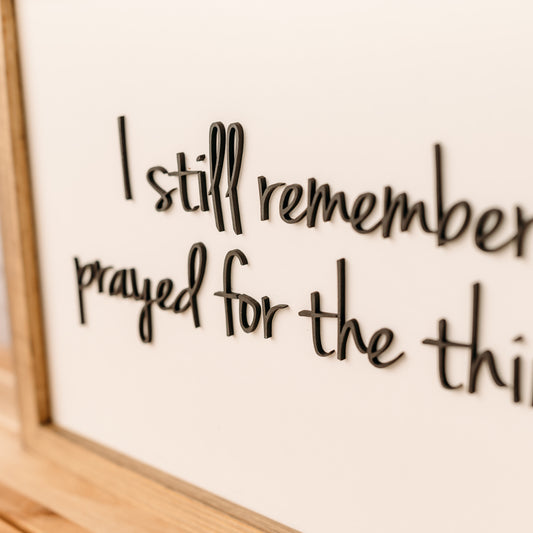 I still remember
prayed for the thi